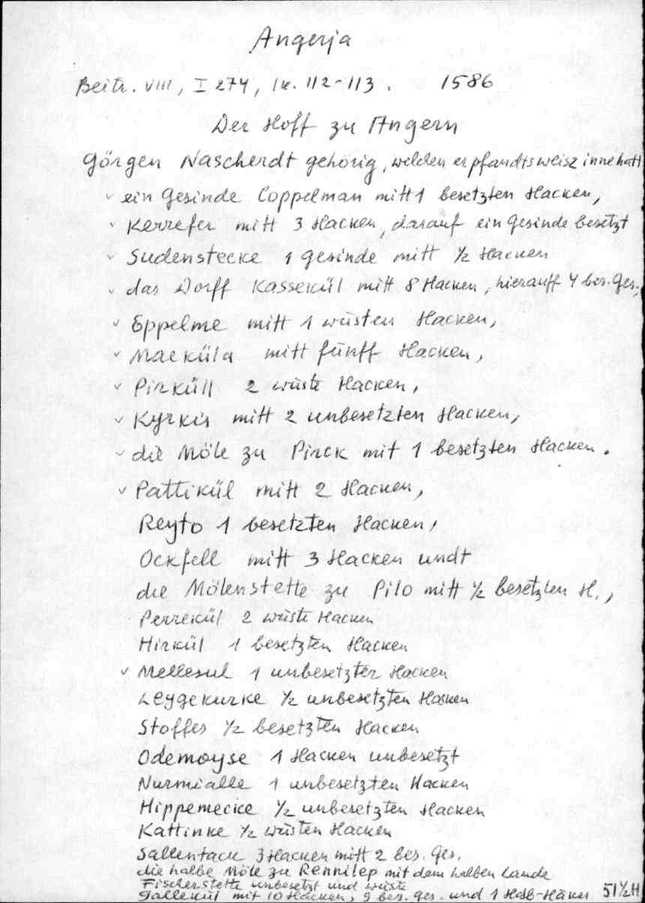 Angerja
Beitr. VIII, I 274, lk. 112-113. 1586
Der Hoff zu Angern
Görgen Nascherdt gehörig, welden er pfandtsweisz inne hatt
✓ ein Gesinde Coppelman mitt 1 besetzten Hacken,
✓ Kerrefer mitt 3 Hacken, darauf ein Gesinde besetzt
✓ Sudenstecke 1 Gesinde mitt ½ Hacken
✓ das Dorff Kassekül mitt 8 Hacken, hierauff 4 bes. Ges.,
✓ Eppelme mitt 1 wüsten Hacken,
✓ Maeküla mitt fünff Hacken,
✓ Pirküll 2 wüste Hacken,
✓ Kyrkis mitt 2 unbesetzten Hacken,
✓ die Möle zu Pirck mit 1 besetzten Hacken.
✓ Pattikül mitt 2 Hacken,
Reyto 1 besetzten Hacken,
Ockfell mitt 3 Hacken undt
die Mölenstette zu Pilo mitt ½ besetzten H.,
Perrekül 2 wüste Hacken
Hirkül 1 besetzten Hacken
✓ Mellesul 1 unbesetzter Hacken
Leygekurke ½ unbesetzten Hacken
Stoffes ½ besetzten Hacken
Odemoyse 1 Hacken unbesetzt
Nurmialle 1 unbesetzten Hacken
Hippemecke ½ unbesetzten Hacken
Kattinke ½ wüsten Hacken
Sallentack 3 Hacken mitt 2 bes. Ges.
die halbe Möle zu Rennilep mit dem halben Lande
Fischerstette unbesetzt und wüste
Gallekül mit 10 Hacken, 9 bes. Ges. und 1 Halb-Häker 51½H